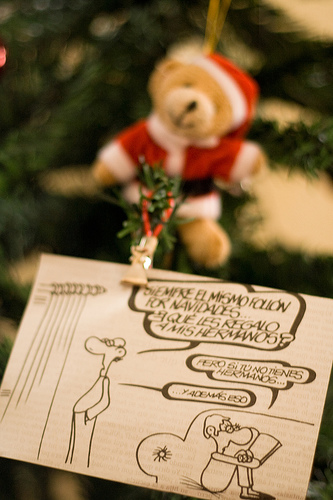 SIEMPRE EL MISMO FOLLÓN
POR NAVIDADES...
¿ QUÉ LES REGALO
A MIS HERMANOS?
PERO, SI TÚ NO TIENES
HERMANOS...
...Y ADEMÁS ESO